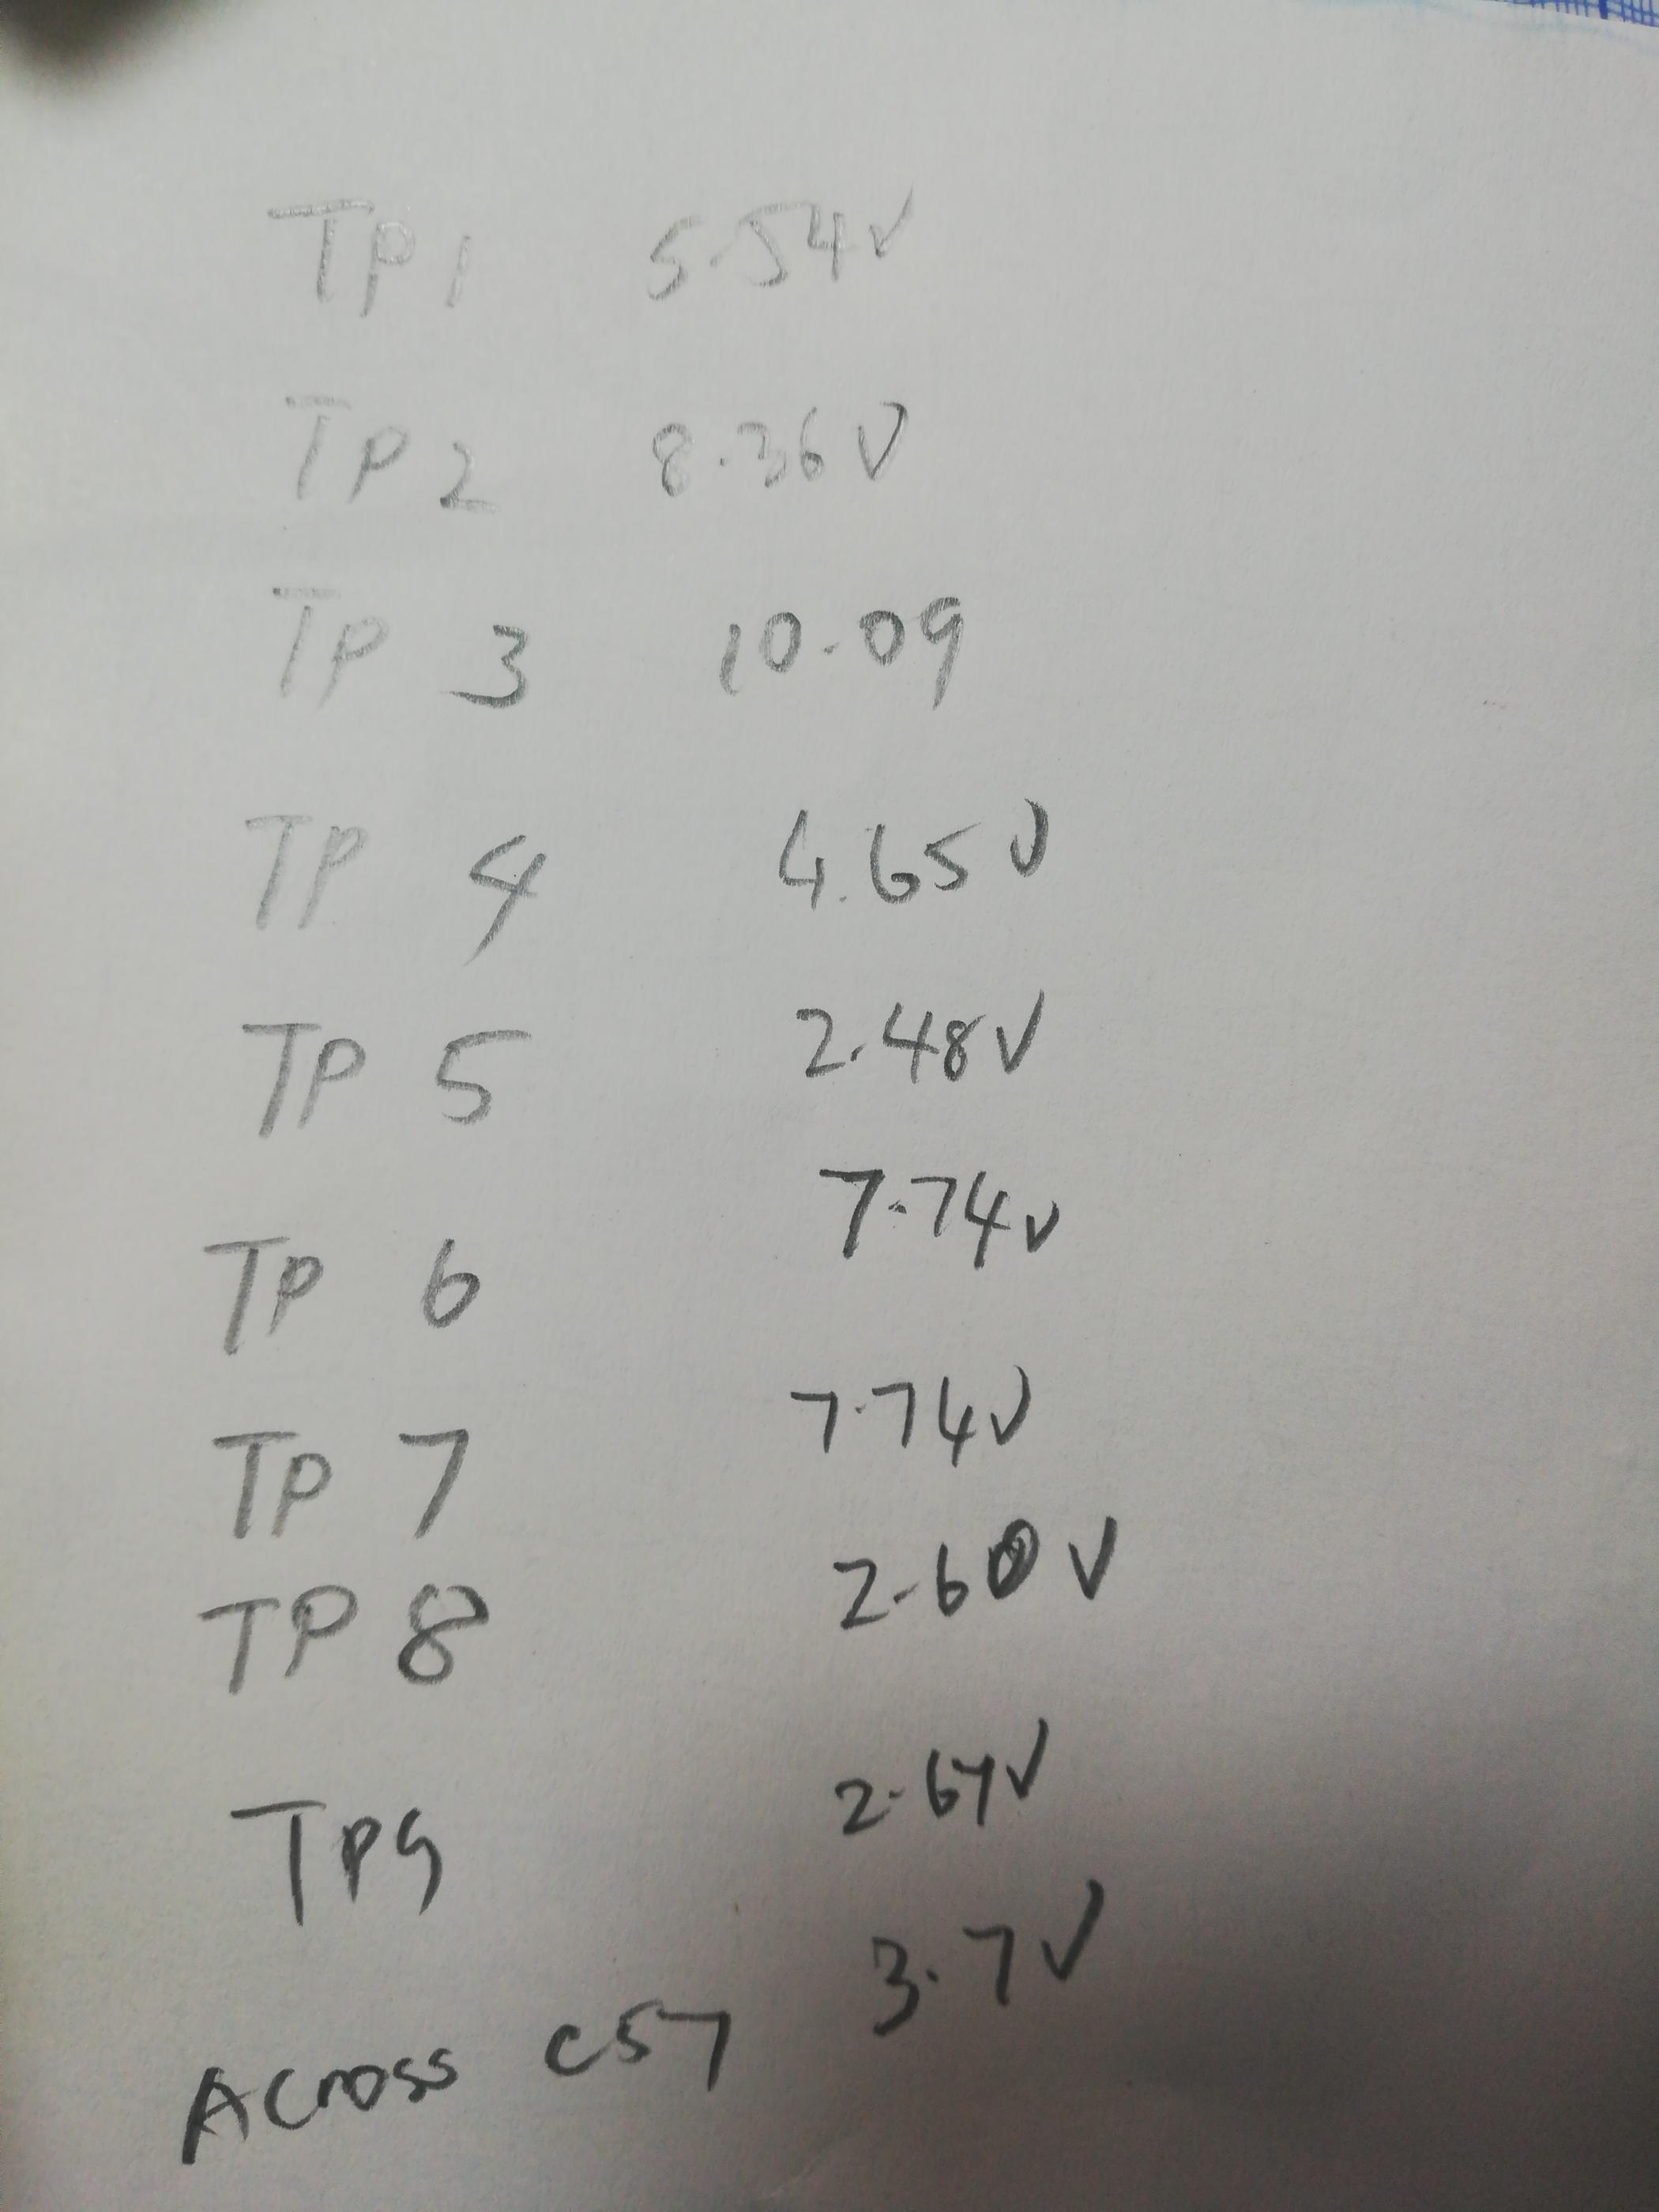 TP1 5.54V
TP2 8.36V
TP 3 10.09
TP 4 4.65V
TP 5 2.48V
TP 6 7.74V
TP 7 7.74V
TP 8 2.60 V
TP9 2.67V
Across C57 3.7V